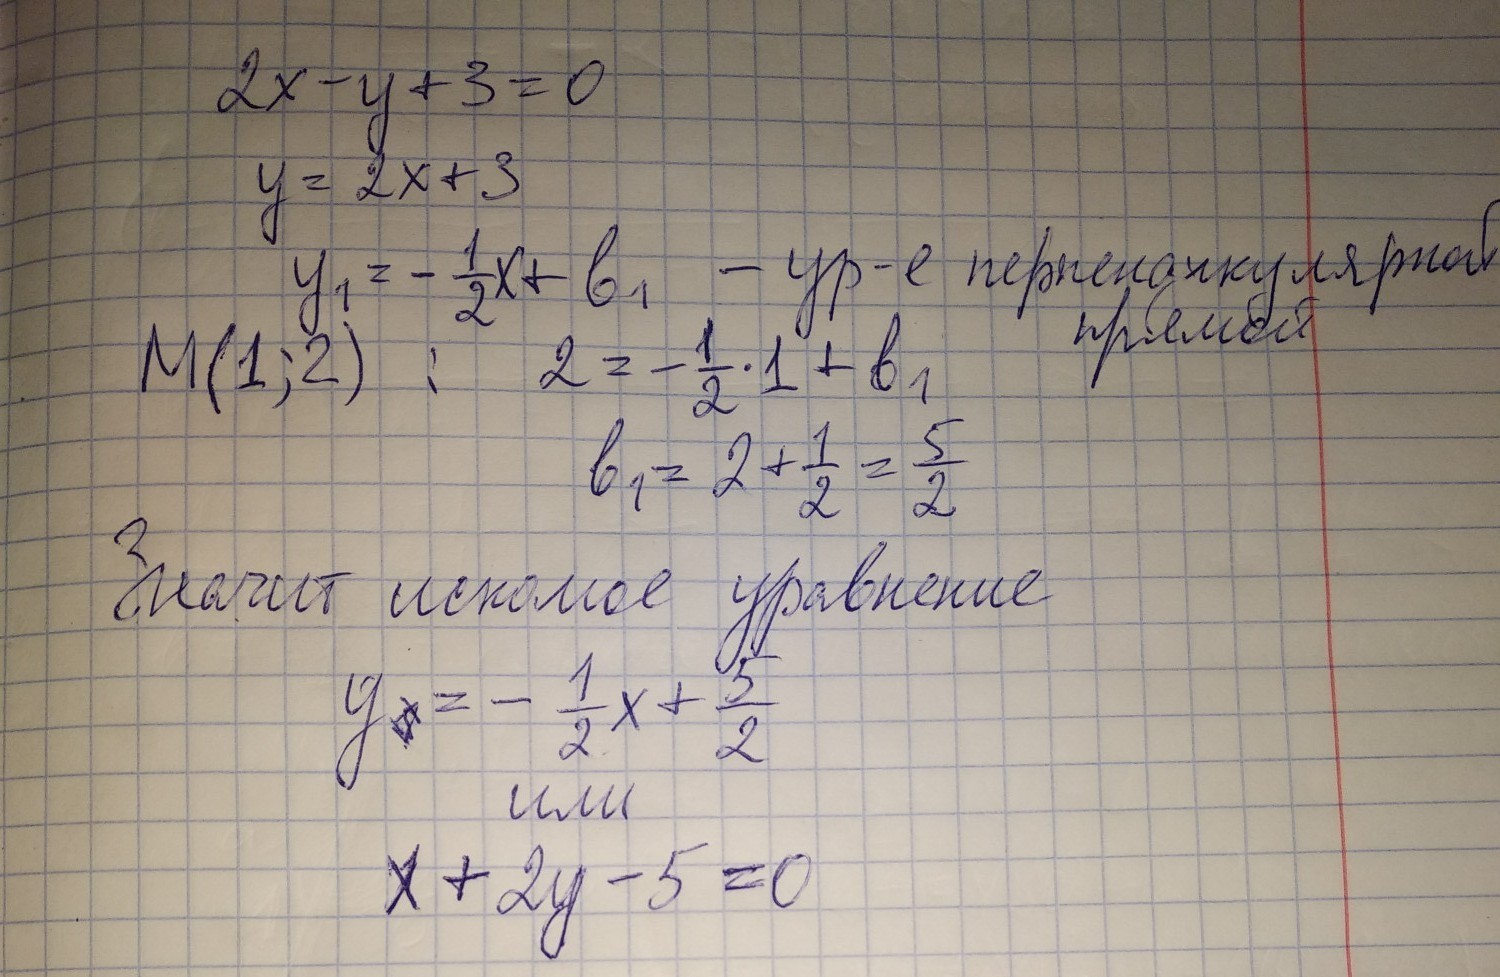 2x - y + 3 = 0
y = 2x + 3
y₁ = - 1/2 x + b₁ - ур-е перпендикулярной
прямой
M(1;2) : 2 = - 1/2 · 1 + b₁
b₁ = 2 + 1/2 = 5/2
Значит искомое уравнение
y = - 1/2 x + 5/2
или
x + 2y - 5 = 0